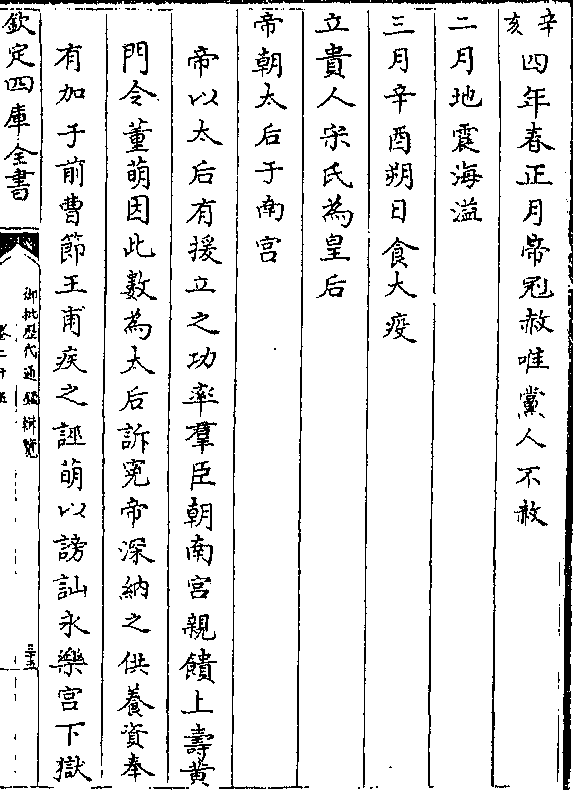 辛亥四年春正月帝冠赦唯黨人不赦
二月地震海溢
三月辛酉朔日食大疫
立貴人宋氏為皇后
帝朝太后于南宫
帝以太后有援立之功率羣臣朝南宫親饋上壽黄
門令董萌因此數為太后訴寃帝深納之供養資奉
有加于前曹節王甫疾之誣萌以謗訕永樂宫下獄
欽定四庫全書
御批歷代通鑑輯覽
卷二十五
三十五